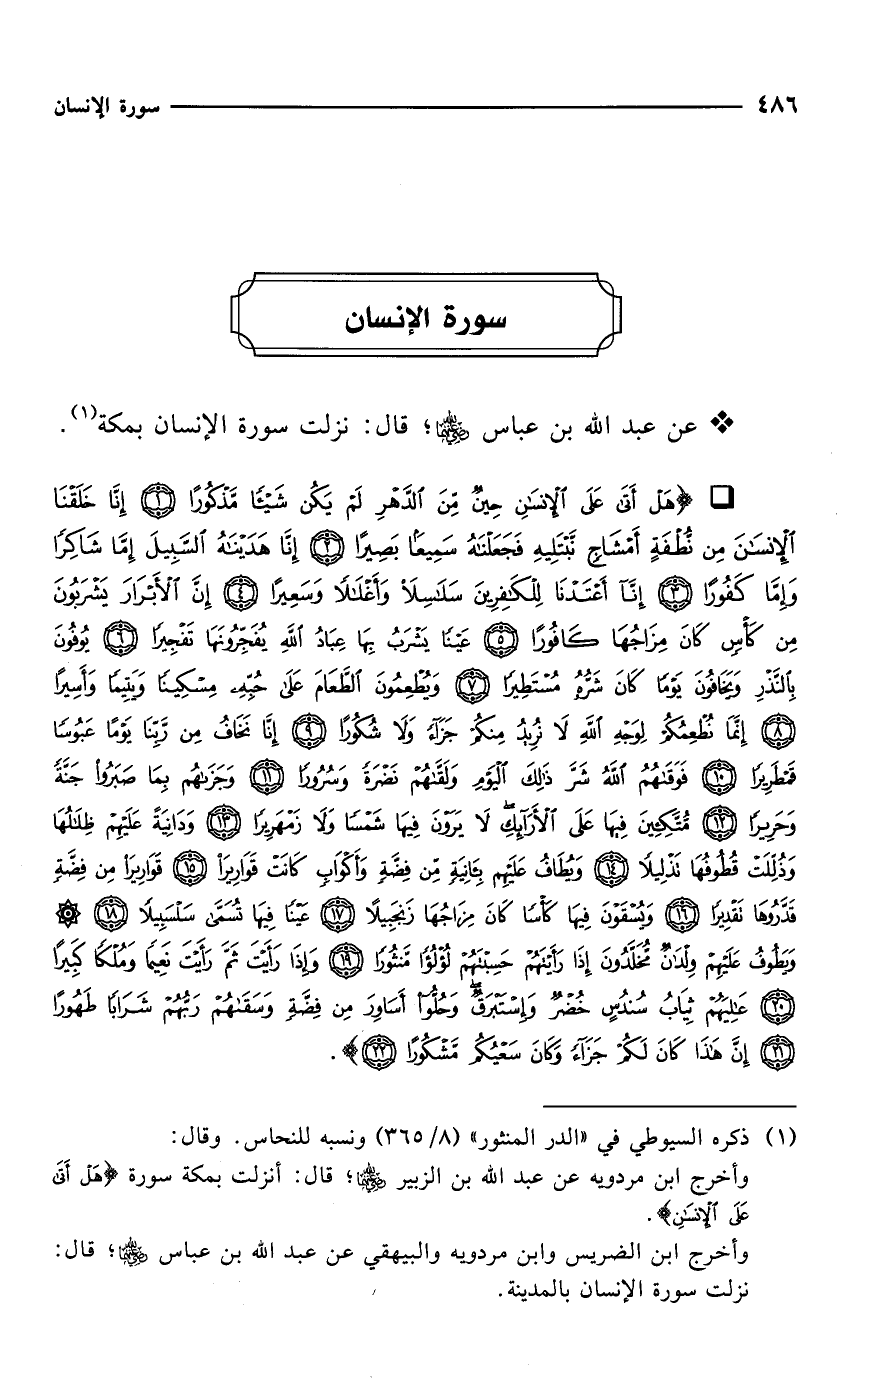 ٤٨٦ سورة الإنسان
سورة الإنسان
❖ عن عبد الله بن عباس رضي الله عنهما؛ قال: نزلت سورة الإنسان بمكة(١).
❑ ﴿هَلْ أَتَىٰ عَلَى ٱلْإِنسَٰنِ حِينٌ مِّنَ ٱلدَّهْرِ لَمْ يَكُن شَيْـًٔا مَّذْكُورًا ١ إِنَّا خَلَقْنَا
ٱلْإِنسَٰنَ مِن نُّطْفَةٍ أَمْشَاجٍ نَّبْتَلِيهِ فَجَعَلْنَٰهُ سَمِيعًۢا بَصِيرًا ٢ إِنَّا هَدَيْنَٰهُ ٱلسَّبِيلَ إِمَّا شَاكِرًا
وَإِمَّا كَفُورًا ٣ إِنَّآ أَعْتَدْنَا لِلْكَٰفِرِينَ سَلَٰسِلَا۟ وَأَغْلَٰلًا وَسَعِيرًا ٤ إِنَّ ٱلْأَبْرَارَ يَشْرَبُونَ
مِن كَأْسٍ كَانَ مِزَاجُهَا كَافُورًا ٥ عَيْنًا يَشْرَبُ بِهَا عِبَادُ ٱللَّهِ يُفَجِّرُونَهَا تَفْجِيرًا ٦ يُوفُونَ
بِٱلنَّذْرِ وَيَخَافُونَ يَوْمًا كَانَ شَرُّهُۥ مُسْتَطِيرًا ٧ وَيُطْعِمُونَ ٱلطَّعَامَ عَلَىٰ حُبِّهِۦ مِسْكِينًا وَيَتِيمًا وَأَسِيرًا
٨ إِنَّمَا نُطْعِمُكُمْ لِوَجْهِ ٱللَّهِ لَا نُرِيدُ مِنكُمْ جَزَآءً وَلَا شُكُورًا ٩ إِنَّا نَخَافُ مِن رَّبِّنَا يَوْمًا عَبُوسًا
قَمْطَرِيرًا ١٠ فَوَقَىٰهُمُ ٱللَّهُ شَرَّ ذَٰلِكَ ٱلْيَوْمِ وَلَقَّىٰهُمْ نَضْرَةً وَسُرُورًا ١١ وَجَزَىٰهُم بِمَا صَبَرُوا۟ جَنَّةً
وَحَرِيرًا ١٢ مُّتَّكِـِٔينَ فِيهَا عَلَى ٱلْأَرَآئِكِ ۖ لَا يَرَوْنَ فِيهَا شَمْسًا وَلَا زَمْهَرِيرًا ١٣ وَدَانِيَةً عَلَيْهِمْ ظِلَٰلُهَا
وَذُلِّلَتْ قُطُوفُهَا تَذْلِيلًا ١٤ وَيُطَافُ عَلَيْهِم بِـَٔانِيَةٍ مِّن فِضَّةٍ وَأَكْوَابٍ كَانَتْ قَوَارِيرَا۠ ١٥ قَوَارِيرَا۟ مِن فِضَّةٍ
قَدَّرُوهَا تَقْدِيرًا ١٦ وَيُسْقَوْنَ فِيهَا كَأْسًا كَانَ مِزَاجُهَا زَنجَبِيلًا ١٧ عَيْنًا فِيهَا تُسَمَّىٰ سَلْسَبِيلًا ١٨ ۞
وَيَطُوفُ عَلَيْهِمْ وِلْدَٰنٌ مُّخَلَّدُونَ إِذَا رَأَيْتَهُمْ حَسِبْتَهُمْ لُؤْلُؤًا مَّنثُورًا ١٩ وَإِذَا رَأَيْتَ ثَمَّ رَأَيْتَ نَعِيمًا وَمُلْكًا كَبِيرًا
٢٠ عَٰلِيَهُمْ ثِيَابُ سُندُسٍ خُضْرٌ وَإِسْتَبْرَقٌ ۖ وَحُلُّوٓا۟ أَسَاوِرَ مِن فِضَّةٍ وَسَقَىٰهُمْ رَبُّهُمْ شَرَابًا طَهُورًا
٢١ إِنَّ هَٰذَا كَانَ لَكُمْ جَزَآءً وَكَانَ سَعْيُكُم مَّشْكُورًا ٢٢﴾.
(١) ذكره السيوطي في «الدر المنثور» (٨/ ٣٦٥) ونسبه للنحاس. وقال:
وأخرج ابن مردويه عن عبد الله بن الزبير رضي الله عنهما؛ قال: أنزلت بمكة سورة ﴿هَلْ أَتَىٰ
عَلَى ٱلْإِنسَٰنِ﴾.
وأخرج ابن الضريس وابن مردويه والبيهقي عن عبد الله بن عباس رضي الله عنهما؛ قال:
نزلت سورة الإنسان بالمدينة.